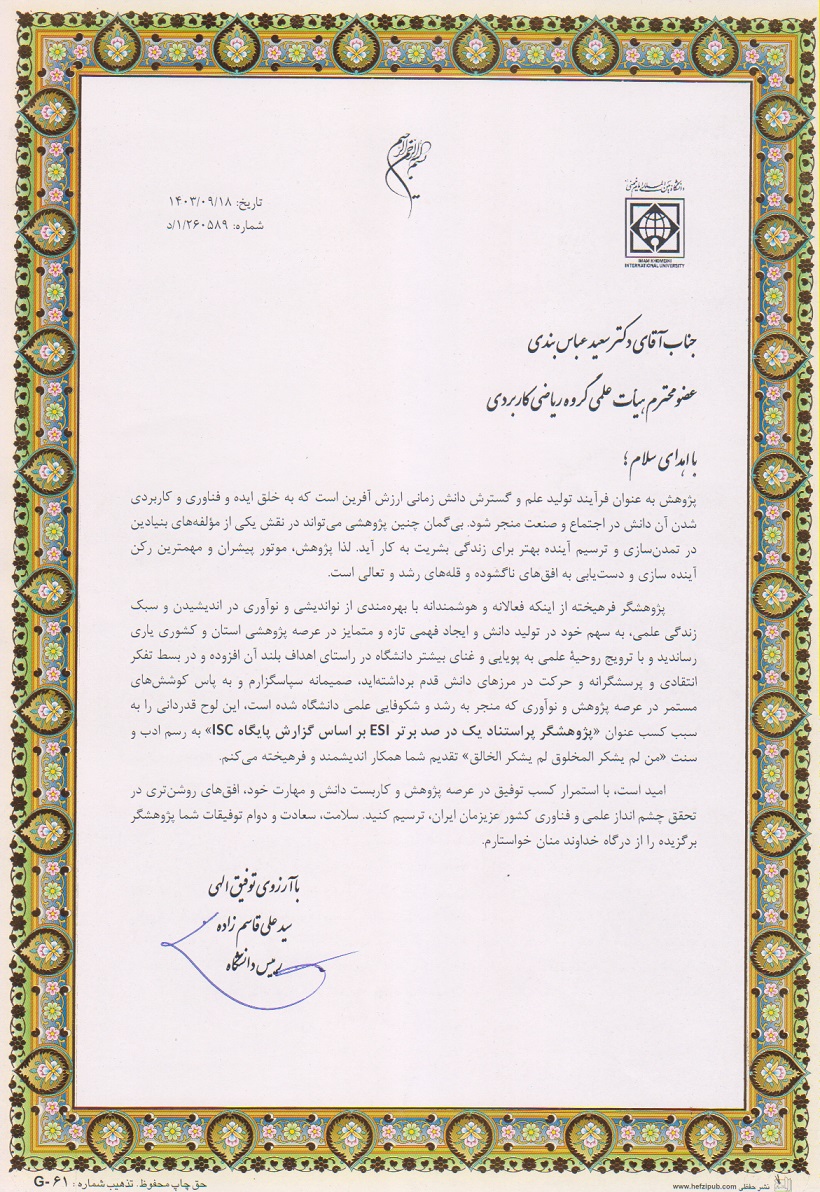 بسم الله الرحمن الرحیم
دانشگاه بین المللی امام خمینی
IMAM KHOMEINI
INTERNATIONAL UNIVERSITY
تاریخ: ۱۴۰۳/۰۹/۱۸
شماره: ۱/۲۶۰۵۸۹/د
جناب آقای دکتر سعید عباس بندی
عضو محترم هیأت علمی گروه ریاضی کاربردی
با اهدای سلام؛
پژوهش به عنوان فرآیند تولید علم و گسترش دانش زمانی ارزش آفرین است که به خلق ایده و فناوری و کاربردی
شدن آن دانش در اجتماع و صنعت منجر شود. بی‌گمان چنین پژوهشی می‌تواند در نقش یکی از مؤلفه‌های بنیادین
در تمدن‌سازی و ترسیم آینده بهتر برای زندگی بشریت به کار آید. لذا پژوهش، موتور پیشران و مهمترین رکن
آینده سازی و دست‌یابی به افق‌های ناگشوده و قله‌های رشد و تعالی است.
پژوهشگر فرهیخته از اینکه فعالانه و هوشمندانه با بهره‌مندی از نواندیشی و نوآوری در اندیشیدن و سبک
زندگی علمی، به سهم خود در تولید دانش و ایجاد فهمی تازه و متمایز در عرصه پژوهشی استان و کشوری یاری
رساندید و با ترویج روحیهٔ علمی به پویایی و غنای بیشتر دانشگاه در راستای اهداف بلند آن افزوده و در بسط تفکر
انتقادی و پرسشگرانه و حرکت در مرزهای دانش قدم برداشته‌اید، صمیمانه سپاسگزارم و به پاس کوشش‌های
مستمر در عرصه پژوهش و نوآوری که منجر به رشد و شکوفایی علمی دانشگاه شده است، این لوح قدردانی را به
سبب کسب عنوان «پژوهشگر پراستناد یک در صد برتر ESI بر اساس گزارش پایگاه ISC» به رسم ادب و
سنت «من لم یشکر المخلوق لم یشکر الخالق» تقدیم شما همکار اندیشمند و فرهیخته می‌کنم.
امید است، با استمرار کسب توفیق در عرصه پژوهش و کاربست دانش و مهارت خود، افق‌های روشن‌تری در
تحقق چشم انداز علمی و فناوری کشور عزیزمان ایران، ترسیم کنید. سلامت، سعادت و دوام توفیقات شما پژوهشگر
برگزیده را از درگاه خداوند منان خواستارم.
با آرزوی توفیق الهی
سید علی قاسم زاده
رییس دانشگاه
حق چاپ محفوظ. تذهیب شماره: G-۶۱
نشر حفظی www.hefzipub.com